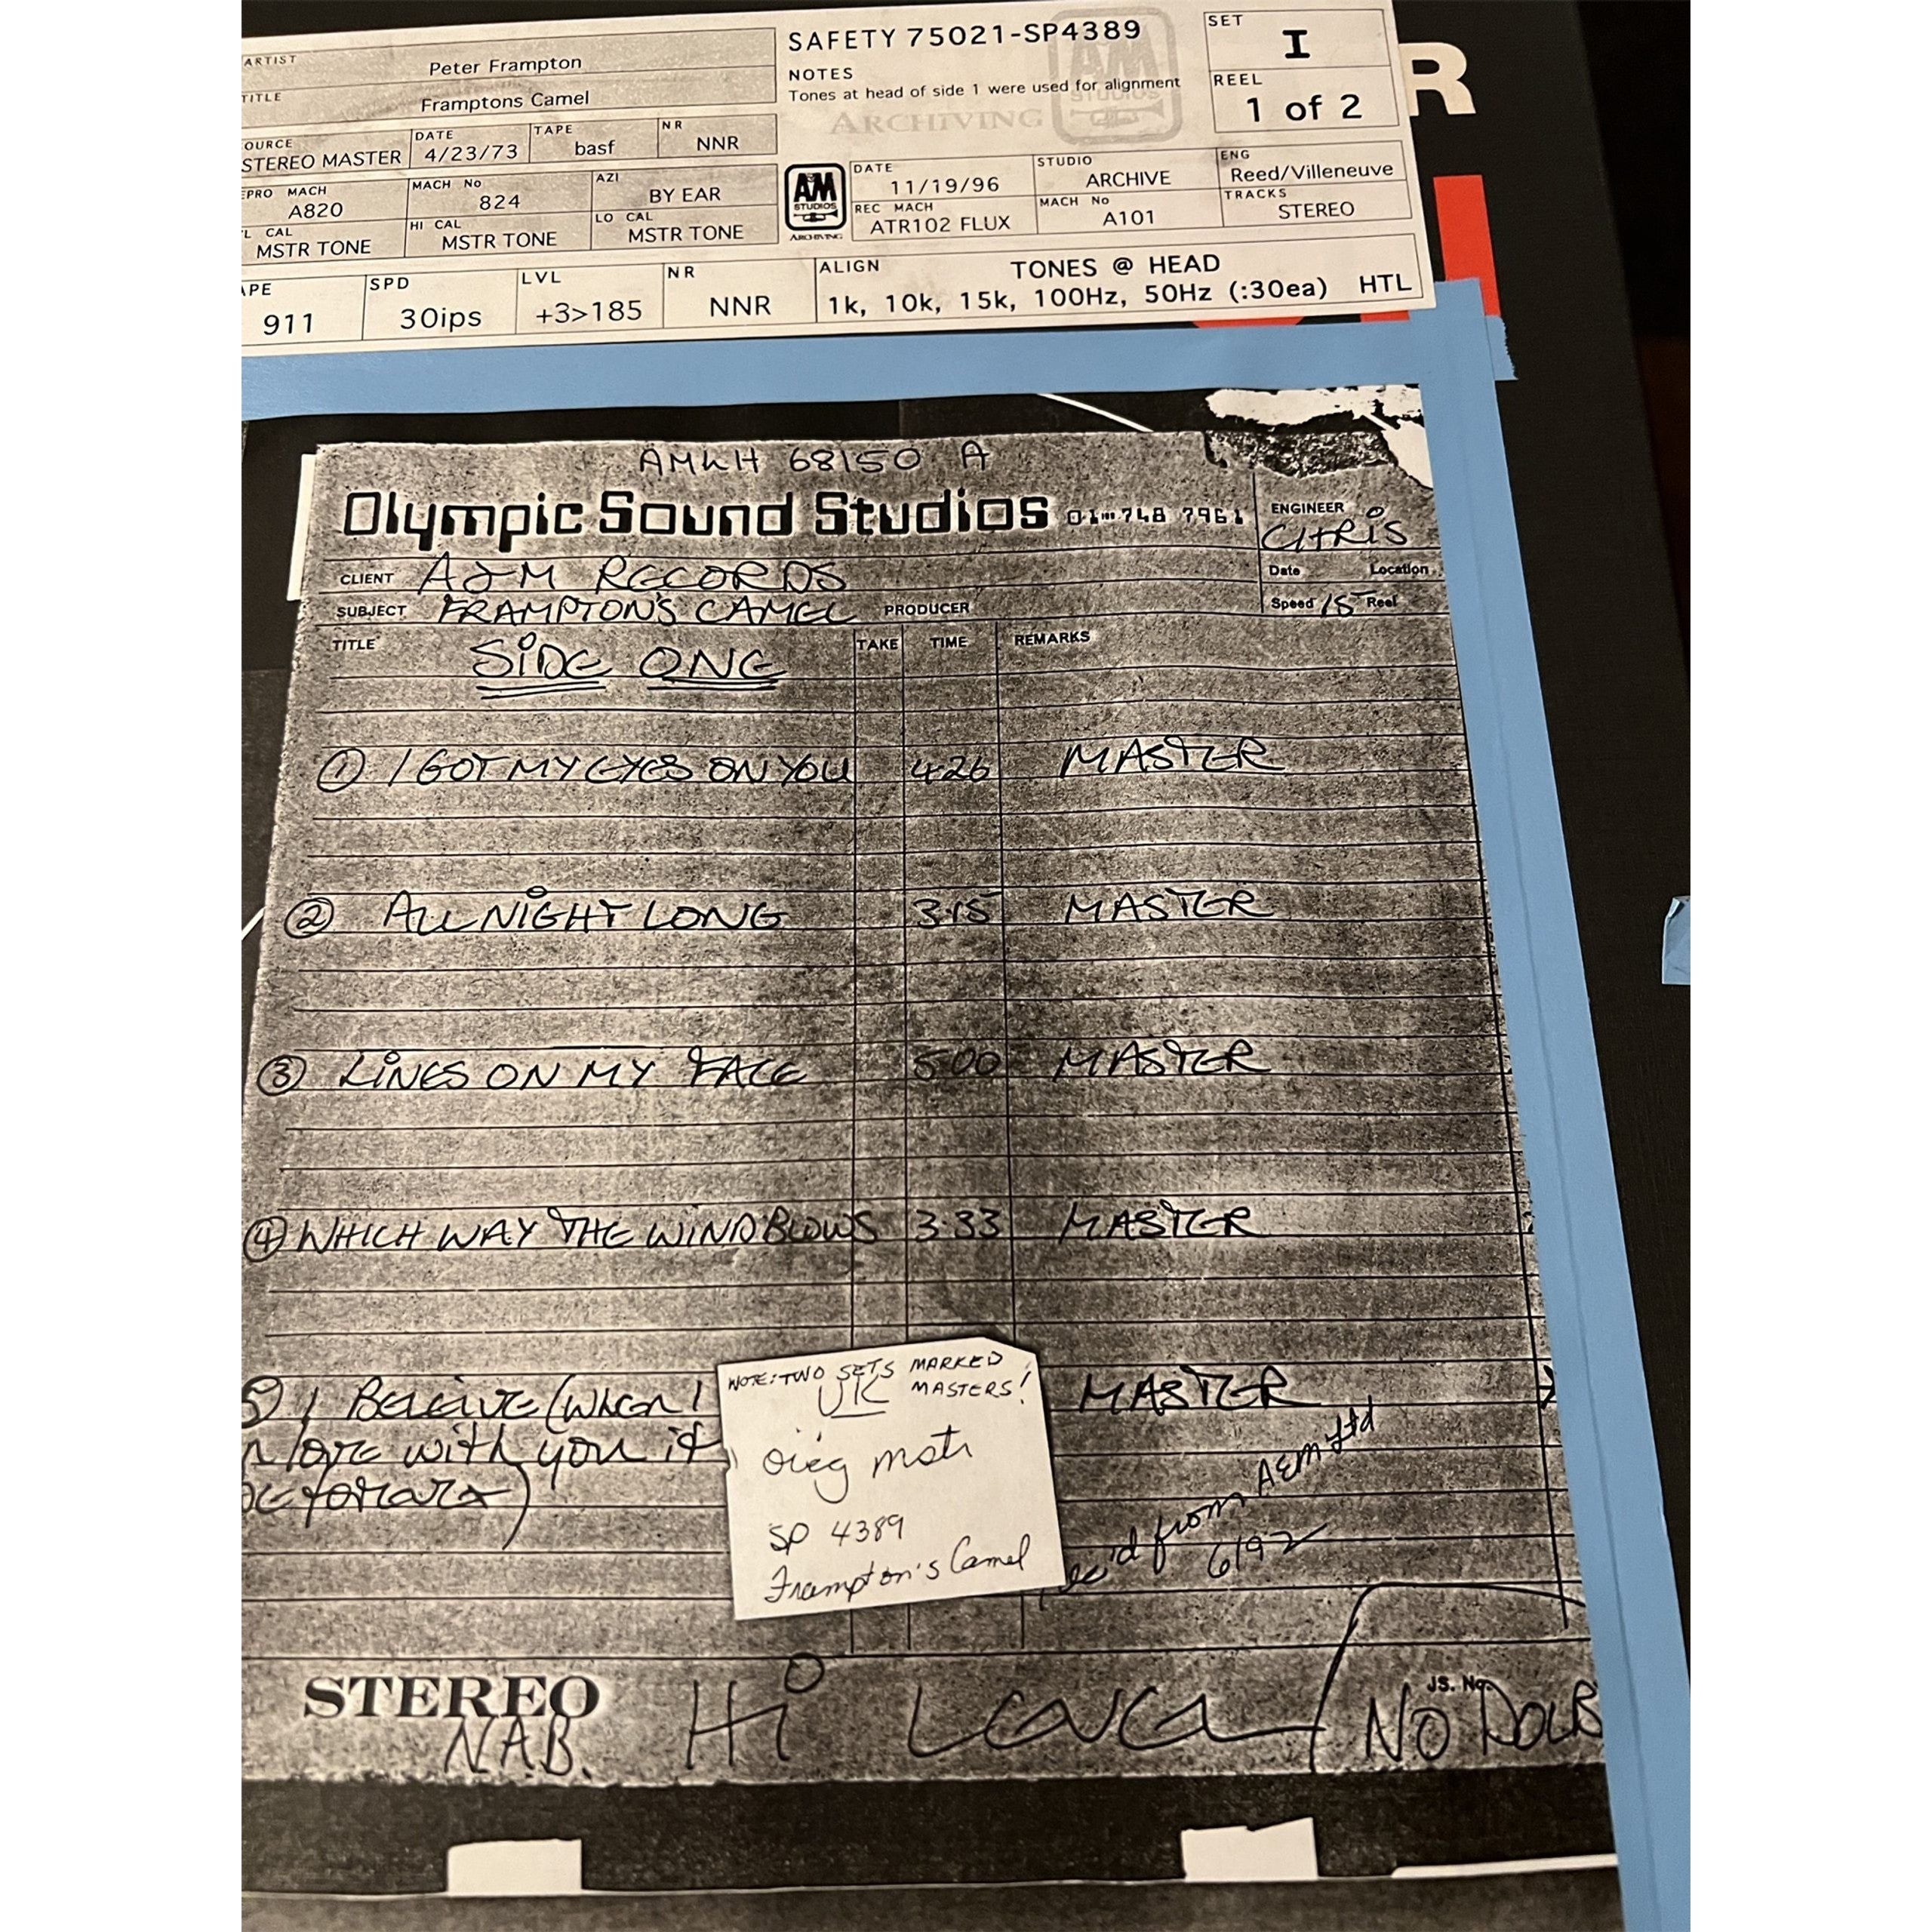 ARTIST Peter Frampton
TITLE Framptons Camel
OURCE STEREO MASTER DATE 4/23/73 TAPE basf NR NNR
EPRO MACH A820 MACH No 824 AZI BY EAR
L CAL MSTR TONE HI CAL MSTR TONE LO CAL MSTR TONE
SAFETY 75021-SP4389
NOTES
Tones at head of side 1 were used for alignment
ARCHIVING
A&M STUDIOS
SET I
REEL 1 of 2
A&M STUDIOS ARCHIVING
DATE 11/19/96 STUDIO ARCHIVE ENG Reed/Villeneuve
REC MACH ATR102 FLUX MACH No A101 TRACKS STEREO
APE 911 SPD 30ips LVL +3>185 NR NNR ALIGN TONES @ HEAD
1k, 10k, 15k, 100Hz, 50Hz (:30ea) HTL
R
AMLH 68150 A
Olympic Sound Studios 01-748 7961
ENGINEER CHRIS
CLIENT A&M RECORDS
Date Location
SUBJECT FRAMPTON'S CAMEL PRODUCER
Speed 15 Reel
TITLE SIDE ONE TAKE TIME REMARKS
① I GOT MY EYES ON YOU 4·26 MASTER
② ALL NIGHT LONG 3·15 MASTER
③ LINES ON MY FACE 5·00 MASTER
④ WHICH WAY THE WIND BLOWS 3·33 MASTER
⑤ I BELIEVE (WHEN I MASTER
N love with you it
be forever)
NOTE: TWO SETS MARKED
UK MASTERS!
orig mstr
SP 4389
Frampton's Camel
Rec'd from A&M Ltd
6/92
STEREO
NAB. Hi Level
JS. No.
NO DOLB